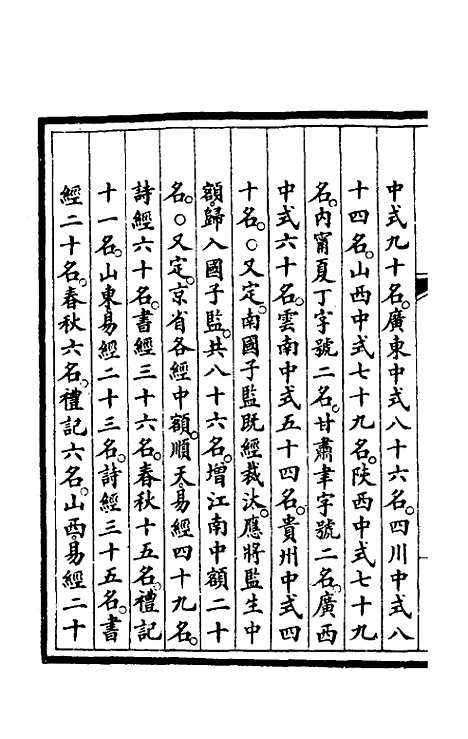 中式九十名。廣東中式八十六名。四川中式八
十四名。山西中式七十九名。陝西中式七十九
名。內甯夏丁字號二名。甘肅聿字號二名。廣西
中式六十名。雲南中式五十四名。貴州中式四
十名。○又定。南國子監既經裁汰。應將監生中
額。歸入國子監。共八十六名。增江南中額二十
名。○又定。京省各經中額。順天。易經四十九名。
詩經六十名。書經三十六名。春秋十五名。禮記
十一名。山東。易經二十三名。詩經三十五名。書
經二十名。春秋六名。禮記六名。山西。易經二十